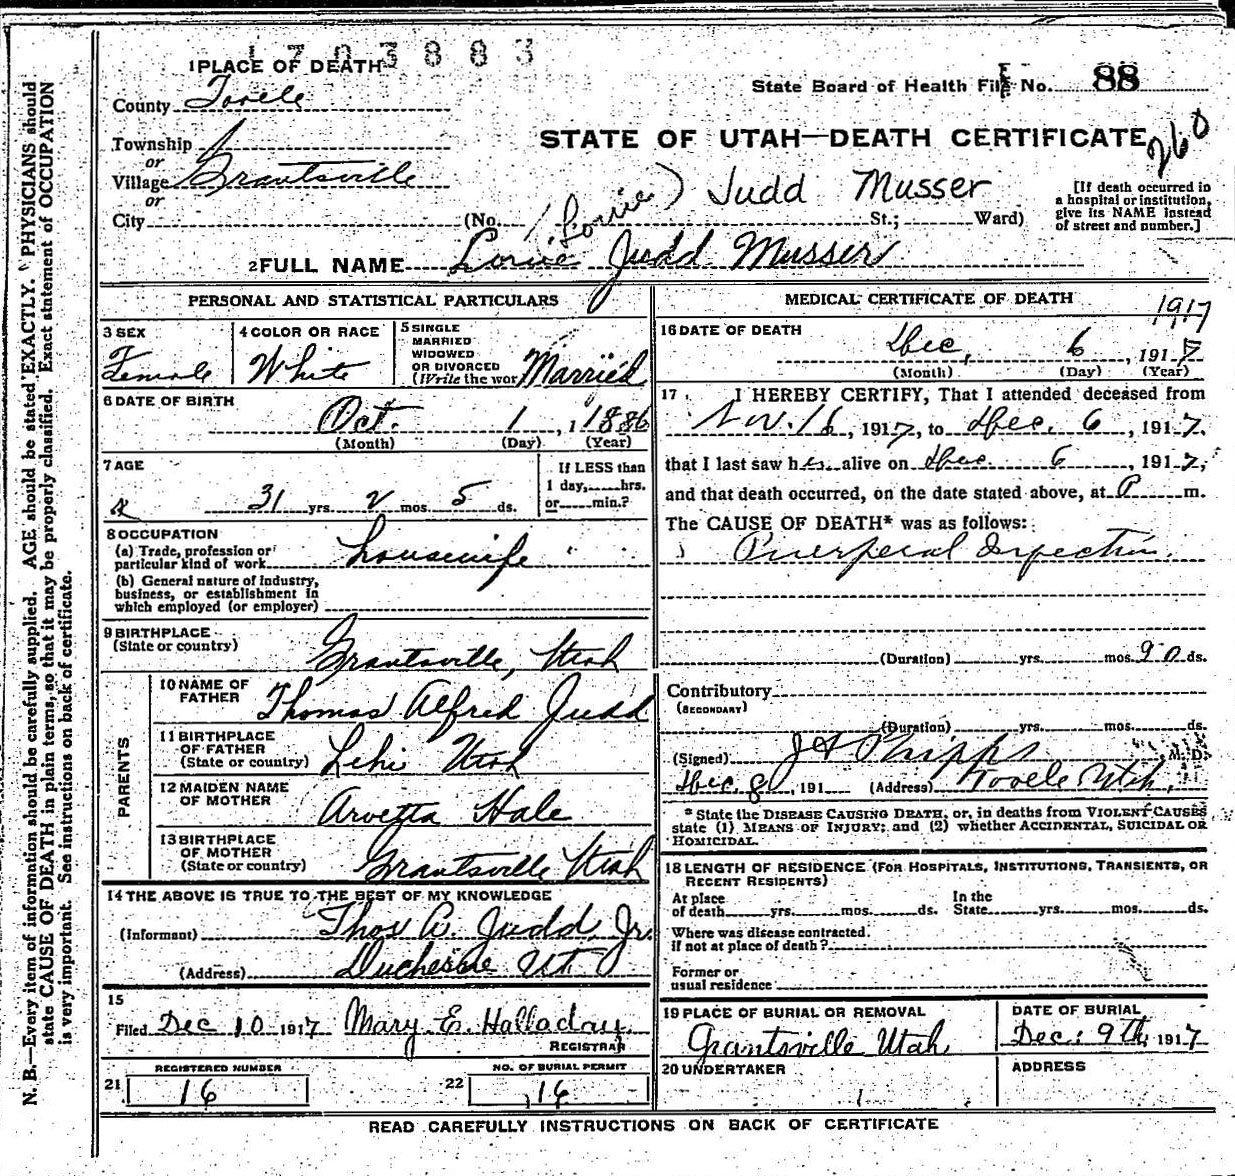 1703883
1 PLACE OF DEATH
State Board of Health File No. 88
County Tooele
STATE OF UTAH—DEATH CERTIFICATE
260
Township
or
Village Grantsville
or
City (No. St.; Ward)
(Lorie) Judd Musser
[If death occurred in
a hospital or institution,
give its NAME instead
of street and number.]
2 FULL NAME Lorie Judd Musser
PERSONAL AND STATISTICAL PARTICULARS
3 SEX
Female
4 COLOR OR RACE
White
5 SINGLE
MARRIED
WIDOWED
OR DIVORCED
(Write the wor Married
6 DATE OF BIRTH
Oct. 1, 1886
(Month) (Day) (Year)
7 AGE
31 yrs. 2 mos. 5 ds.
If LESS than
1 day, hrs.
or min.?
8 OCCUPATION
(a) Trade, profession or
particular kind of work housewife
(b) General nature of industry,
business, or establishment in
which employed (or employer)
9 BIRTHPLACE
(State or country) Grantsville, Utah
PARENTS
10 NAME OF
FATHER Thomas Alfred Judd
11 BIRTHPLACE
OF FATHER
(State or country) Lehi Utah
12 MAIDEN NAME
OF MOTHER Arvetta Hale
13 BIRTHPLACE
OF MOTHER
(State or country) Grantsville Utah
14 THE ABOVE IS TRUE TO THE BEST OF MY KNOWLEDGE
(Informant) Thos A. Judd Jr.
(Address) Duchesne Ut
15
Filed Dec 10 1917 Mary E. Halladay
REGISTRAR
21 REGISTERED NUMBER
16
22 NO. OF BURIAL PERMIT
16
MEDICAL CERTIFICATE OF DEATH
1917
16 DATE OF DEATH
Dec. 6, 1917
(Month) (Day) (Year)
17 I HEREBY CERTIFY, That I attended deceased from
Nov. 16, 1917, to Dec. 6, 1917,
that I last saw her alive on Dec. 6, 1917,
and that death occurred, on the date stated above, at P m.
The CAUSE OF DEATH* was as follows:
Puerperal Infection
(Duration) yrs. mos. 20 ds.
Contributory
(SECONDARY)
(Duration) yrs. mos. ds.
(Signed) J A Phipps, M. D.
Dec. 8, 191 (Address) Tooele Utah,
* State the DISEASE CAUSING DEATH, or, in deaths from VIOLENT CAUSES
state (1) MEANS OF INJURY; and (2) whether ACCIDENTAL, SUICIDAL OR
HOMICIDAL.
18 LENGTH OF RESIDENCE (FOR HOSPITALS, INSTITUTIONS, TRANSIENTS, OR
RECENT RESIDENTS)
At place In the
of death yrs. mos. ds. State yrs. mos. ds.
Where was disease contracted.
if not at place of death?
Former or
usual residence
19 PLACE OF BURIAL OR REMOVAL
Grantsville Utah
DATE OF BURIAL
Dec. 9th, 1917
20 UNDERTAKER
ADDRESS
READ CAREFULLY INSTRUCTIONS ON BACK OF CERTIFICATE
N. B.—Every item of information should be carefully supplied. AGE should be stated EXACTLY. PHYSICIANS should
state CAUSE OF DEATH in plain terms, so that it may be properly classified. Exact statement of OCCUPATION
is very important. See instructions on back of certificate.